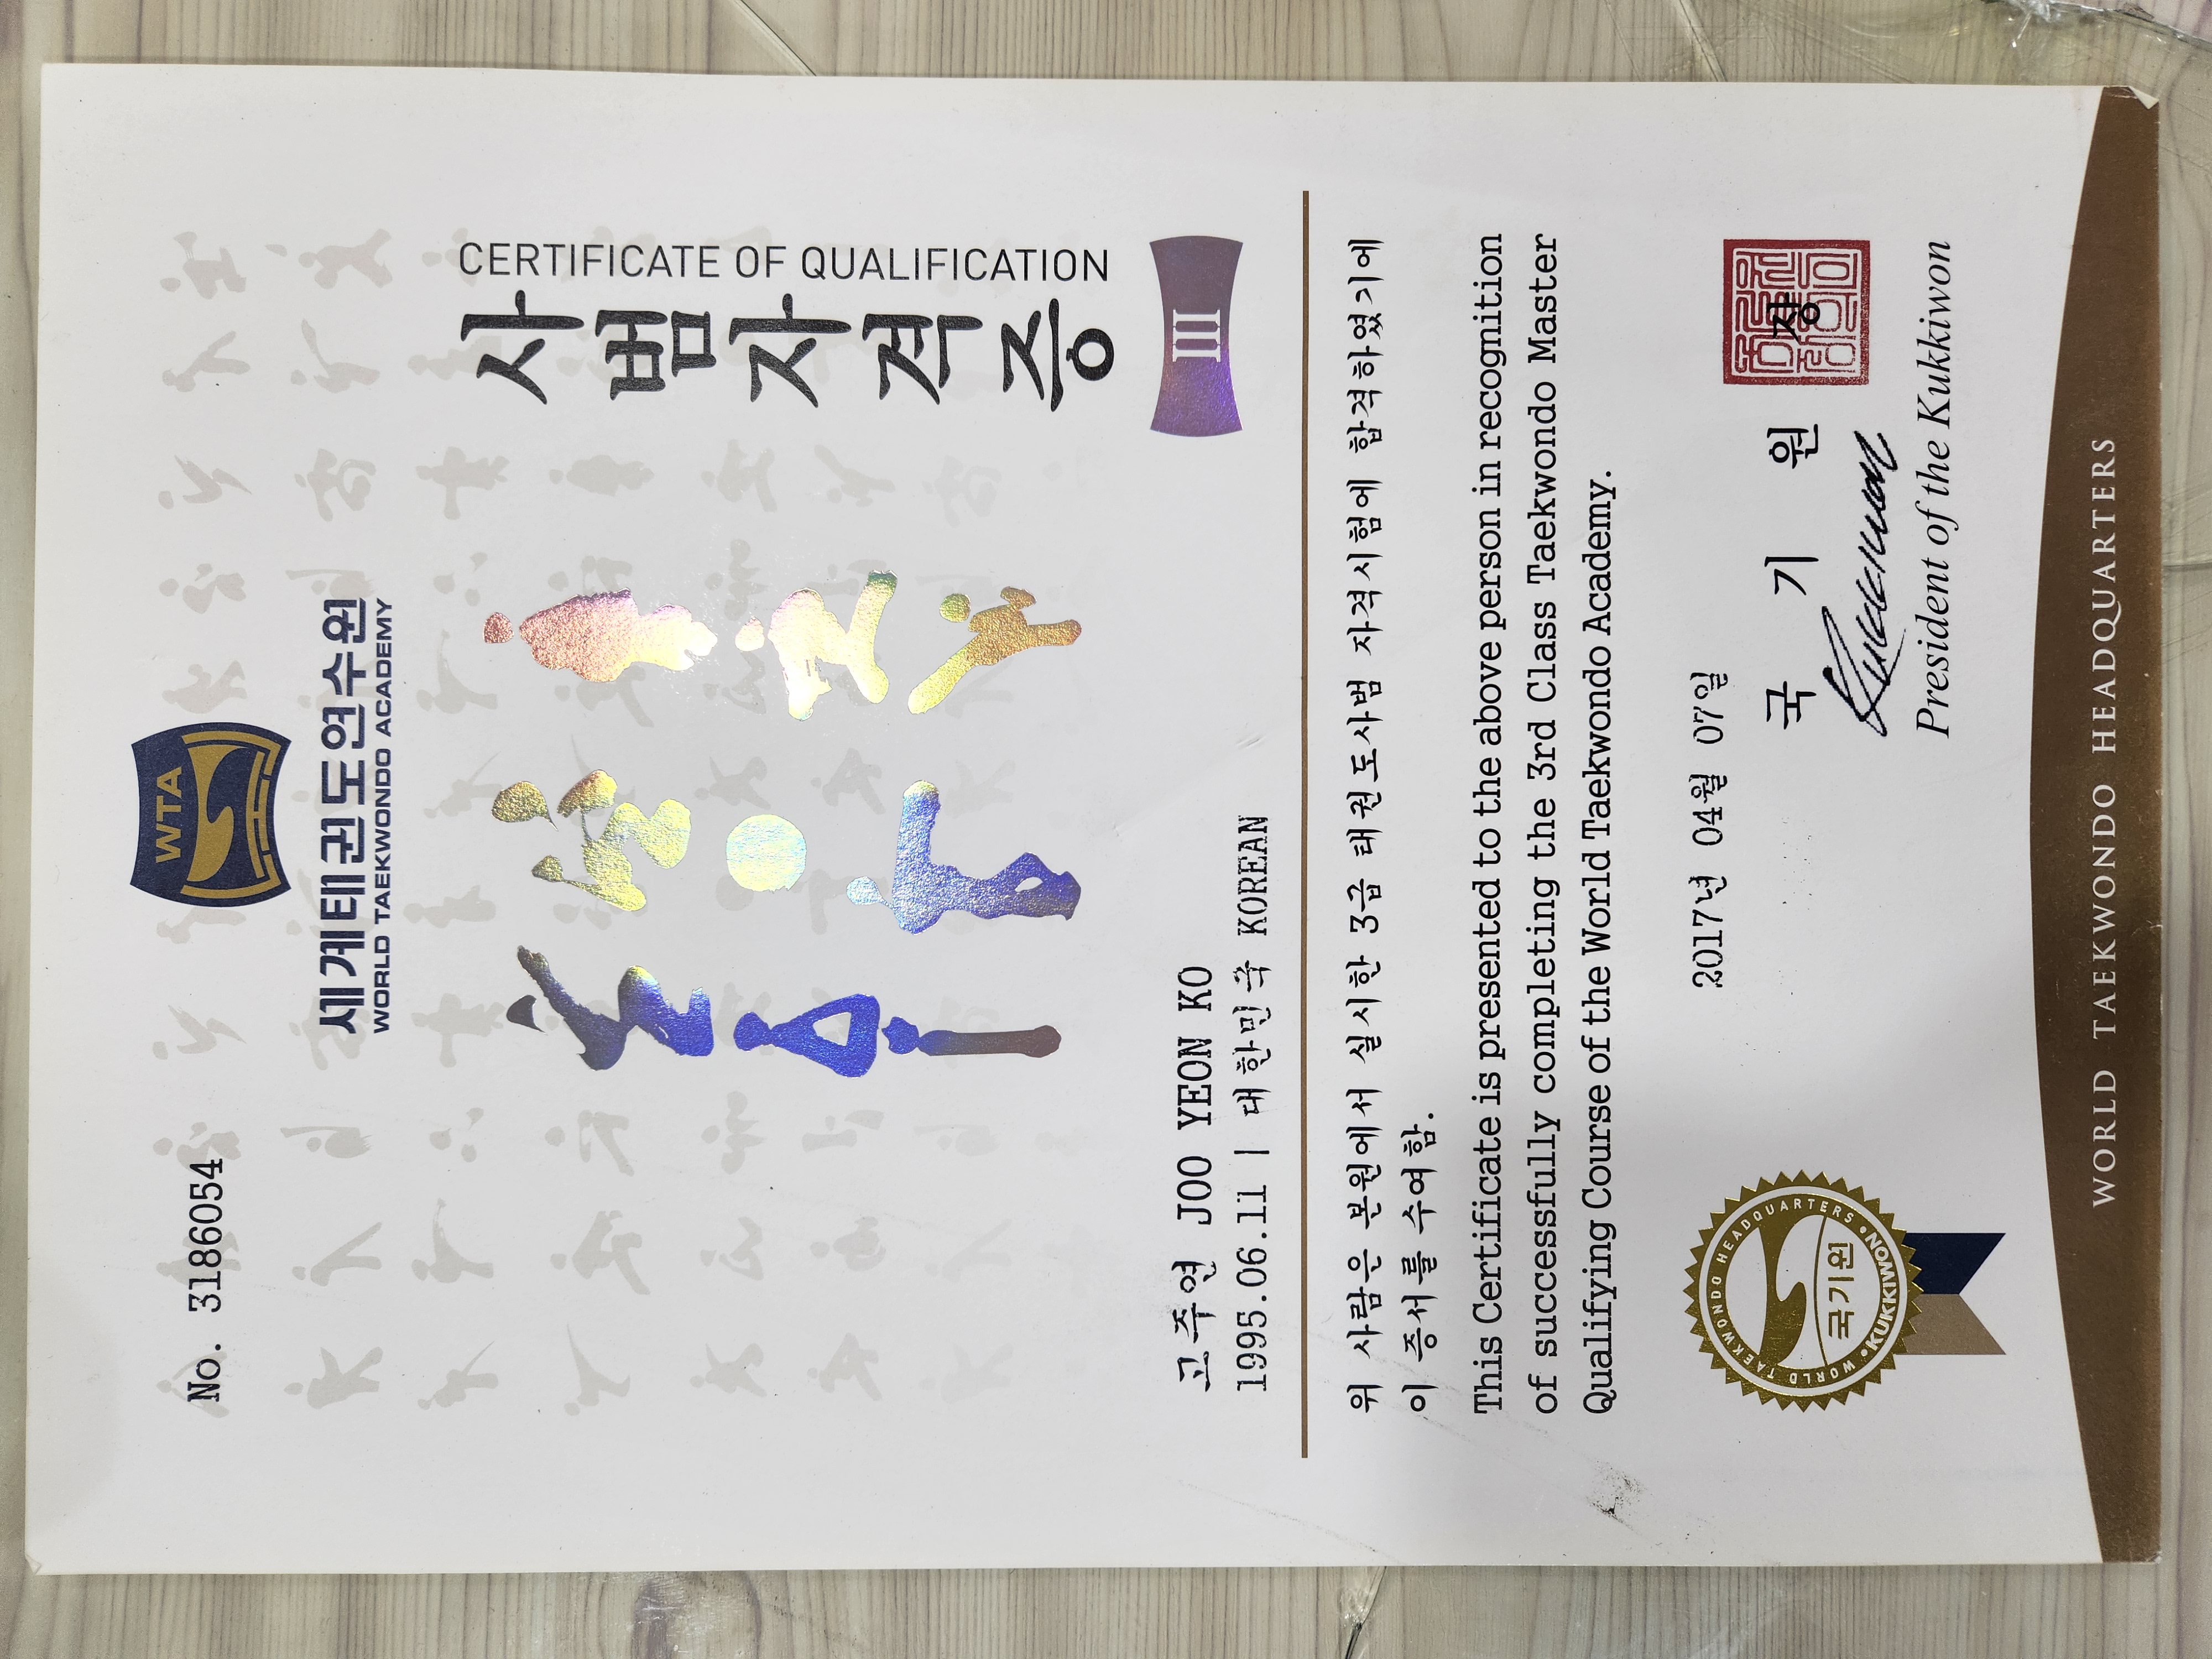 No. 31860054
WTA
세계태권도연수원
WORLD TAEKWONDO ACADEMY
사범자격증
CERTIFICATE OF QUALIFICATION
III
고주연 JOO YEON KO
1995.06.11 | 대한민국 KOREAN
위 사람은 본원에서 실시한 3급 태권도사범 자격시험에 합격하였기에
이 증서를 수여함.
This Certificate is presented to the above person in recognition
of successfully completing the 3rd Class Taekwondo Master
Qualifying Course of the World Taekwondo Academy.
2017년 04월 07일
국 기 원 장
President of the Kukkiwon
WORLD TAEKWONDO HEADQUARTERS
국기원
KUKKIWON
WORLD TAEKWONDO HEADQUARTERS